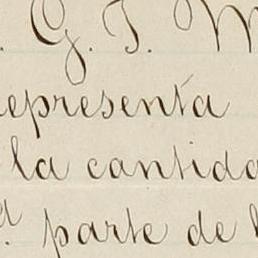 G. T. M
representa
la cantida
parte de l